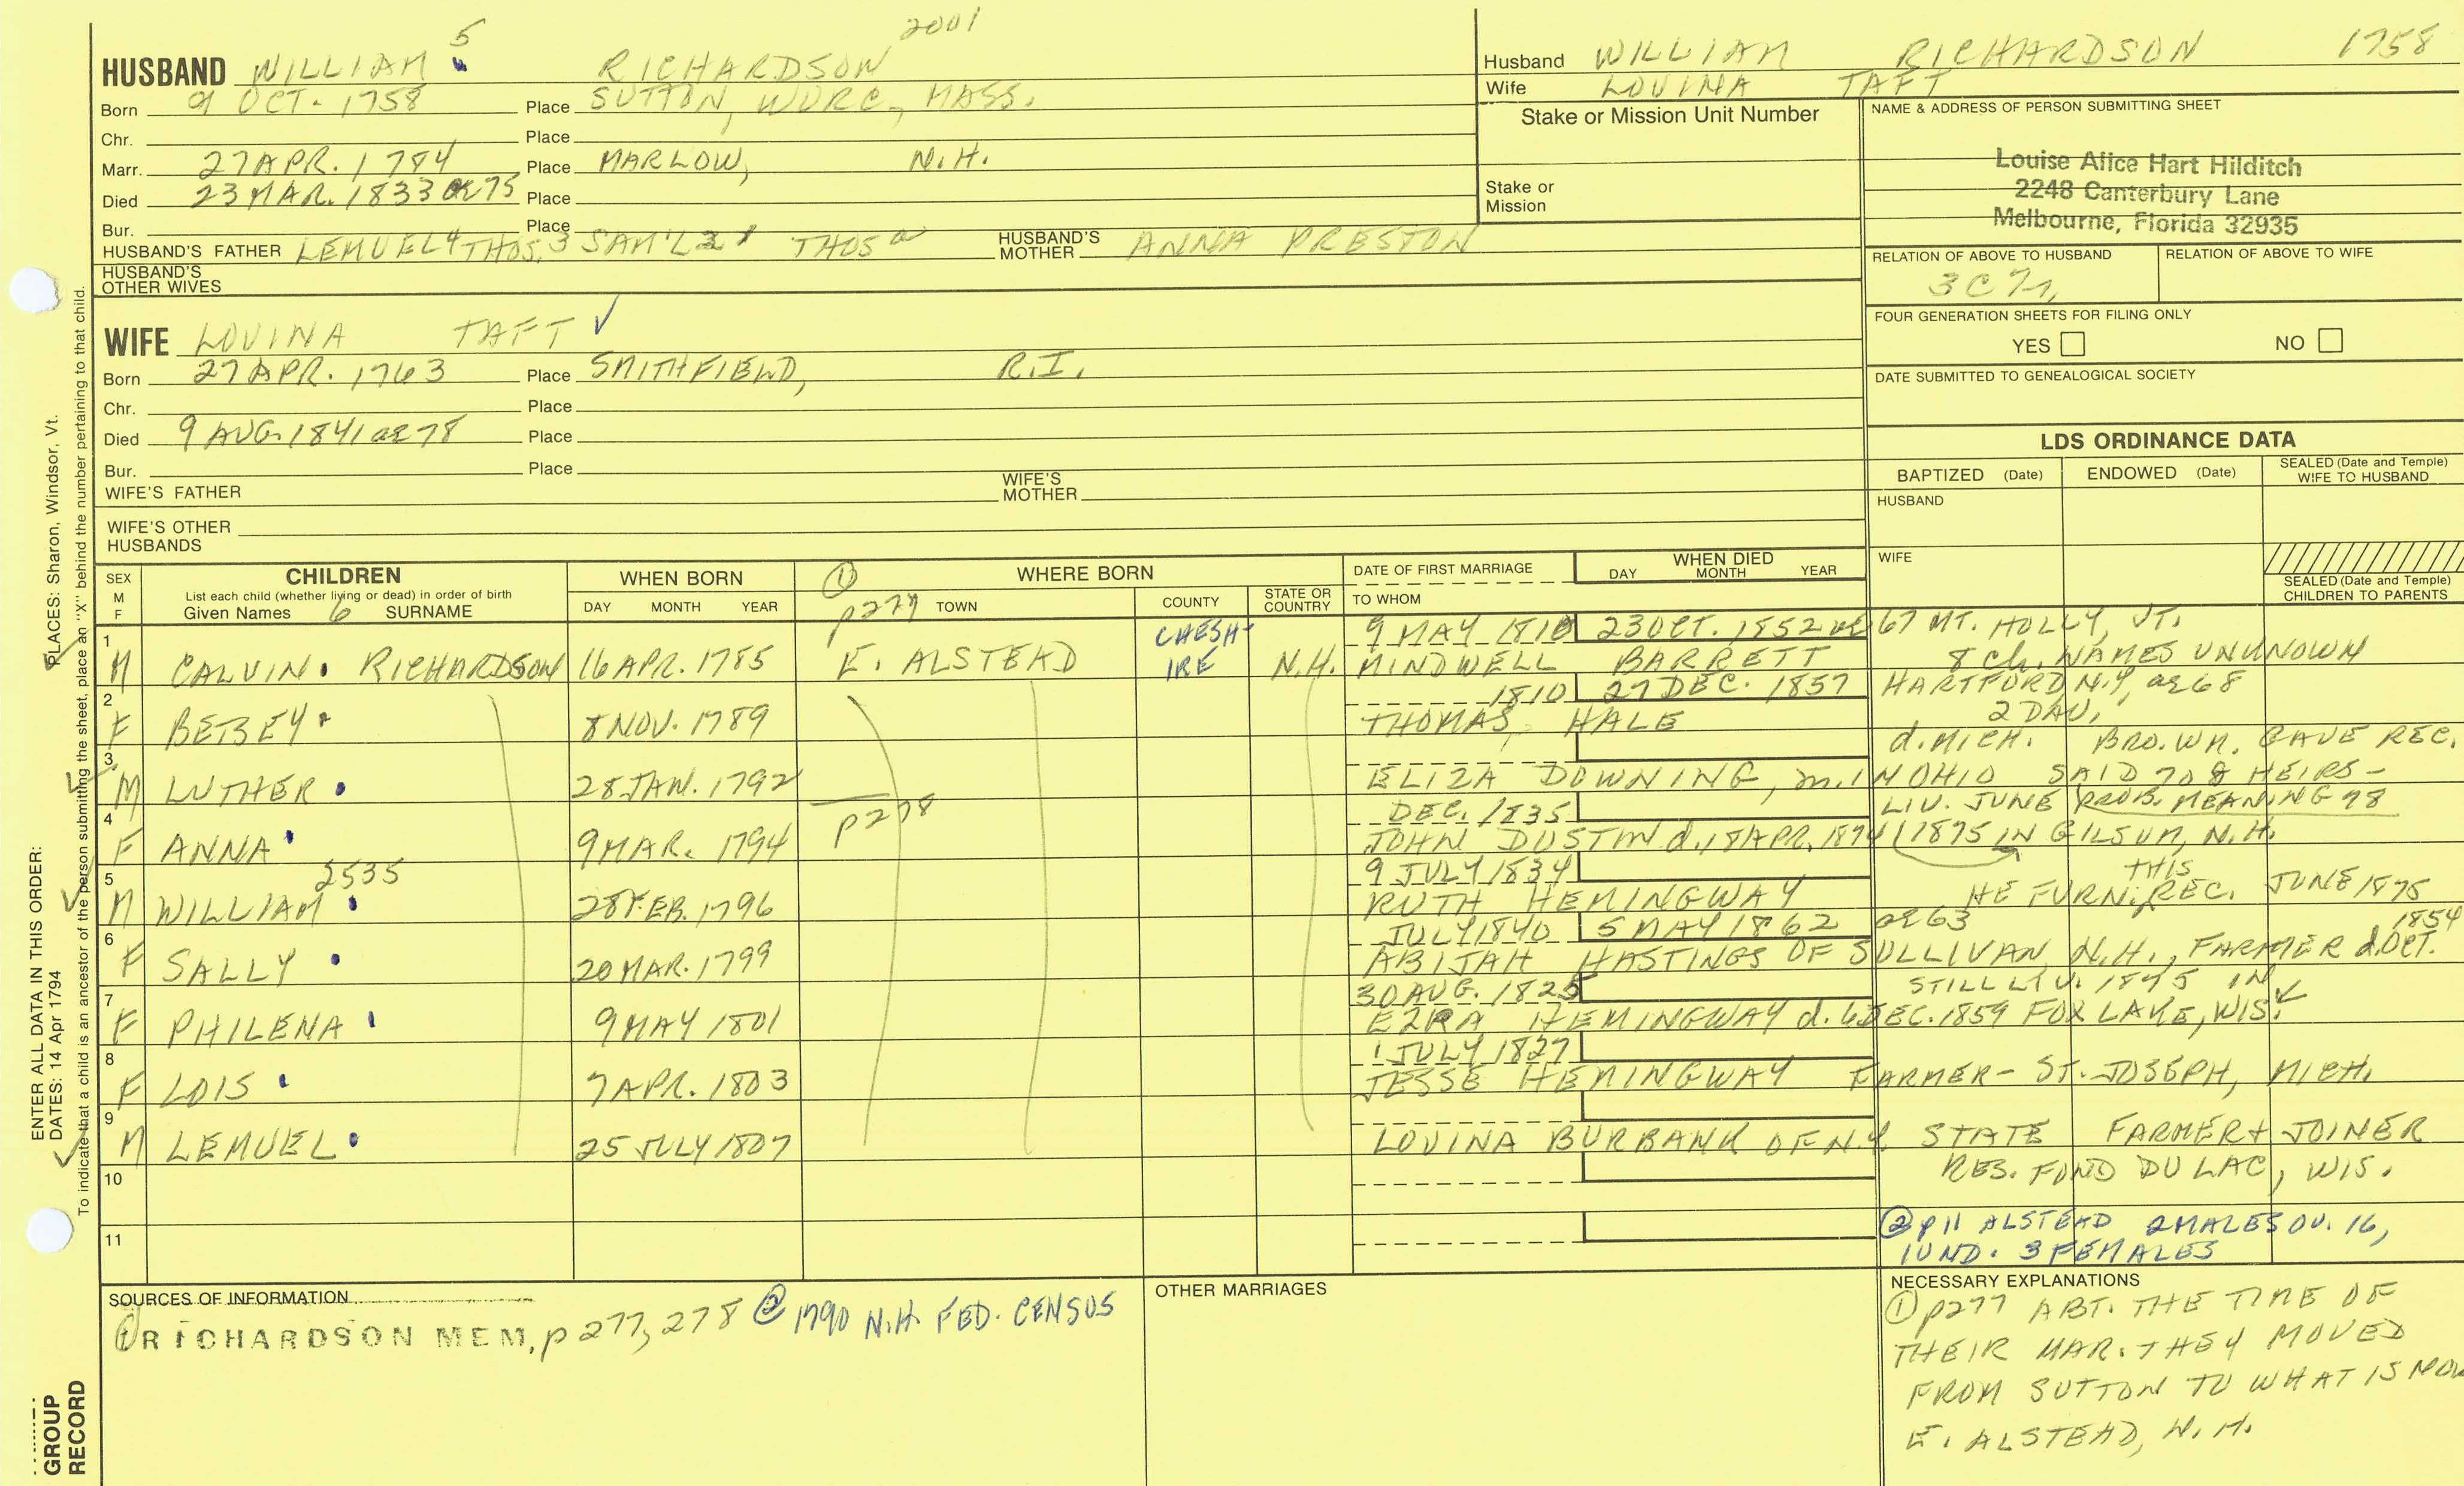 2001
HUSBAND WILLIAM 5 RICHARDSON
Born 9 OCT. 1758 Place SUTTON, WORC, MASS.
Chr. Place
Marr. 27 APR. 1784 Place MARLOW, N.H.
Died 23 MAR. 1833 ae 75 Place
Bur. Place
HUSBAND'S FATHER LEMUEL 4 THOS. 3 SAM'L 2 THOS HUSBAND'S MOTHER ANNA PRESTON
HUSBAND'S OTHER WIVES
WIFE LOVINA TAFT ✓
Born 27 APR. 1763 Place SMITHFIELD, R.I.
Chr. Place
Died 9 AUG. 1841 ae 78 Place
Bur. Place
WIFE'S FATHER WIFE'S MOTHER
WIFE'S OTHER HUSBANDS
Husband WILLIAM RICHARDSON 1758
Wife LOVINA TAFT
Stake or Mission Unit Number
Stake or Mission
NAME & ADDRESS OF PERSON SUBMITTING SHEET
Louise Alice Hart Hilditch
2248 Canterbury Lane
Melbourne, Florida 32935
RELATION OF ABOVE TO HUSBAND RELATION OF ABOVE TO WIFE
3C7r.
FOUR GENERATION SHEETS FOR FILING ONLY
YES NO
DATE SUBMITTED TO GENEALOGICAL SOCIETY
LDS ORDINANCE DATA
BAPTIZED (Date) ENDOWED (Date) SEALED (Date and Temple) WIFE TO HUSBAND
HUSBAND
WIFE
SEALED (Date and Temple) CHILDREN TO PARENTS
SEX M F CHILDREN List each child (whether living or dead) in order of birth Given Names 6 SURNAME
WHEN BORN DAY MONTH YEAR
① WHERE BORN p277 TOWN COUNTY STATE OR COUNTRY
DATE OF FIRST MARRIAGE TO WHOM
WHEN DIED DAY MONTH YEAR
1 M CALVIN RICHARDSON 16 APR. 1785 E. ALSTEAD CHESH-IRE N.H. 9 MAY 1810 23 OCT. 1852 ae 67 MT. HOLLY, VT.
MINDWELL BARRETT 8 Ch. NAMES UNKNOWN
2 F BETSEY 8 NOV. 1789 1810 27 DEC. 1857 HARTFORD N.Y, ae 68
THOMAS HALE 2 DAU,
3 M LUTHER 28 JAN. 1792 d. MICH. BRO. WM. GAVE REC.
ELIZA DOWNING, m. IN OHIO SAID 70 8 HEIRS-
4 F ANNA 9 MAR. 1794 p278 DEC. 1835 LIV. JUNE PROB. MEANING 78
JOHN DUSTIN d. 18 APR. 1874 1875 IN GILSUM, N.H.
5 M WILLIAM 2535 28 FEB. 1796 9 JULY 1834
RUTH HEMINGWAY HE FURN. THIS REC. JUNE 1875
6 F SALLY 20 MAR. 1799 JULY 1840 5 MAY 1862 ae 63
ABIJAH HASTINGS OF SULLIVAN N.H., FARMER d. OCT. 1854
7 F PHILENA 9 MAY 1801 30 AUG. 1825 STILL LIV. 1875 IN
EZRA HEMINGWAY d. 6 DEC. 1859 FOX LAKE, WIS.
8 F LOIS 7 APR. 1803 1 JULY 1827
JESSE HEMINGWAY FARMER- ST. JOSEPH, MICH.
9 M LEMUEL 25 JULY 1807
LOVINA BURBANK OF N.Y. STATE FARMER + JOINER
RES. FOND DU LAC, WIS.
10
11
② p11 ALSTEAD 2 MALES OV. 16,
1 UND. 3 FEMALES
SOURCES OF INFORMATION
① RICHARDSON MEM, p 277, 278 ② 1790 N.H. FED. CENSUS
OTHER MARRIAGES
NECESSARY EXPLANATIONS
① p277 ABT. THE TIME OF
THEIR MAR. THEY MOVED
FROM SUTTON TO WHAT IS NOW
E. ALSTEAD, N.H.
ENTER ALL DATA IN THIS ORDER:
PLACES: Sharon, Windsor, Vt.
DATES: 14 Apr 1794
To indicate that a child is an ancestor of the person submitting the sheet, place an "X" behind the number pertaining to that child.
GROUP
RECORD